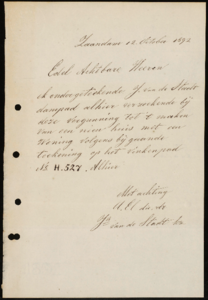 Zaandam 12 October 1892
Edel Achtbare Heeren
Ondergeteekende J. van de Stadt
dampad alhier verzoekende bij
deze vergunning tot 't maken
van een nieuw huis met
woning volgens bijgaande
teekening op het Vinkenpad
No. H. 527. Alhier
Met achting
UEd. dw. dr.
Js van de Stadt